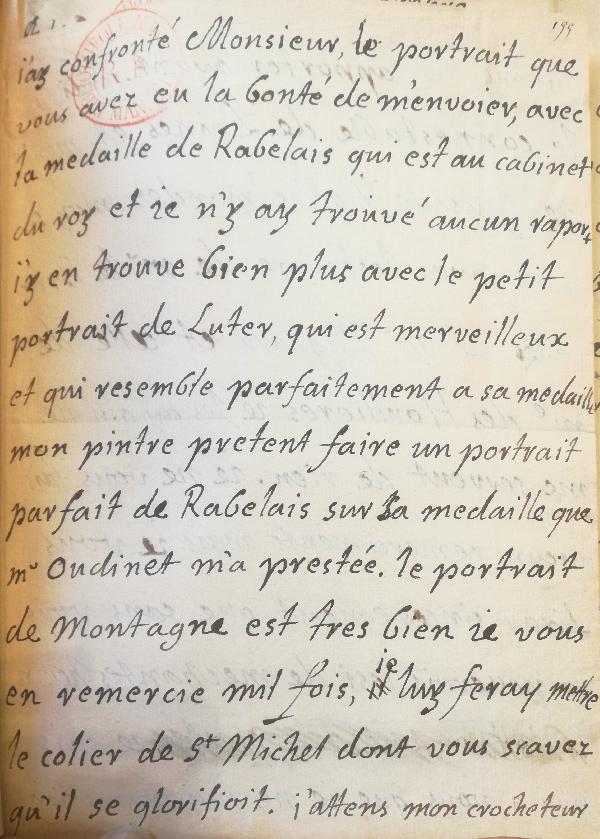 199
i'ay confronté Monsieur, le portrait que
vous avez eu la bonté de m'envoier, avec
la medaille de Rabelais qui est au cabinet
du roy et ie n'y ay trouvé aucun raport
i'y en trouve bien plus avec le petit
portrait de Luter, qui est merveilleux
et qui resemble parfaitement a sa medaille
mon pintre pretent faire un portrait
parfait de Rabelais sur sa medaille que
mr Oudinet m'a prestée. le portrait
de Montagne est tres bien ie vous
en remercie mil fois, ie luy feray mettre
le colier de St Michel dont vous scavez
qu'il se glorifioit. j'attens mon crocheteur